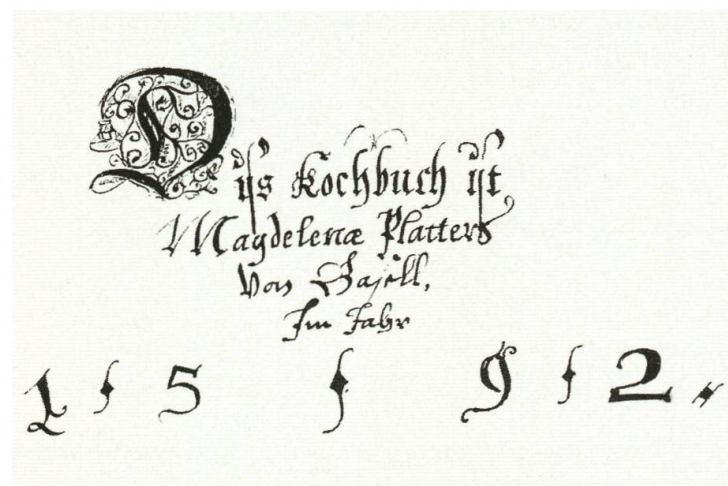 Dijs Kochbuch ijst
Magdelenæ Platters
Von Basell,
Im Jahr
1 5 9 2